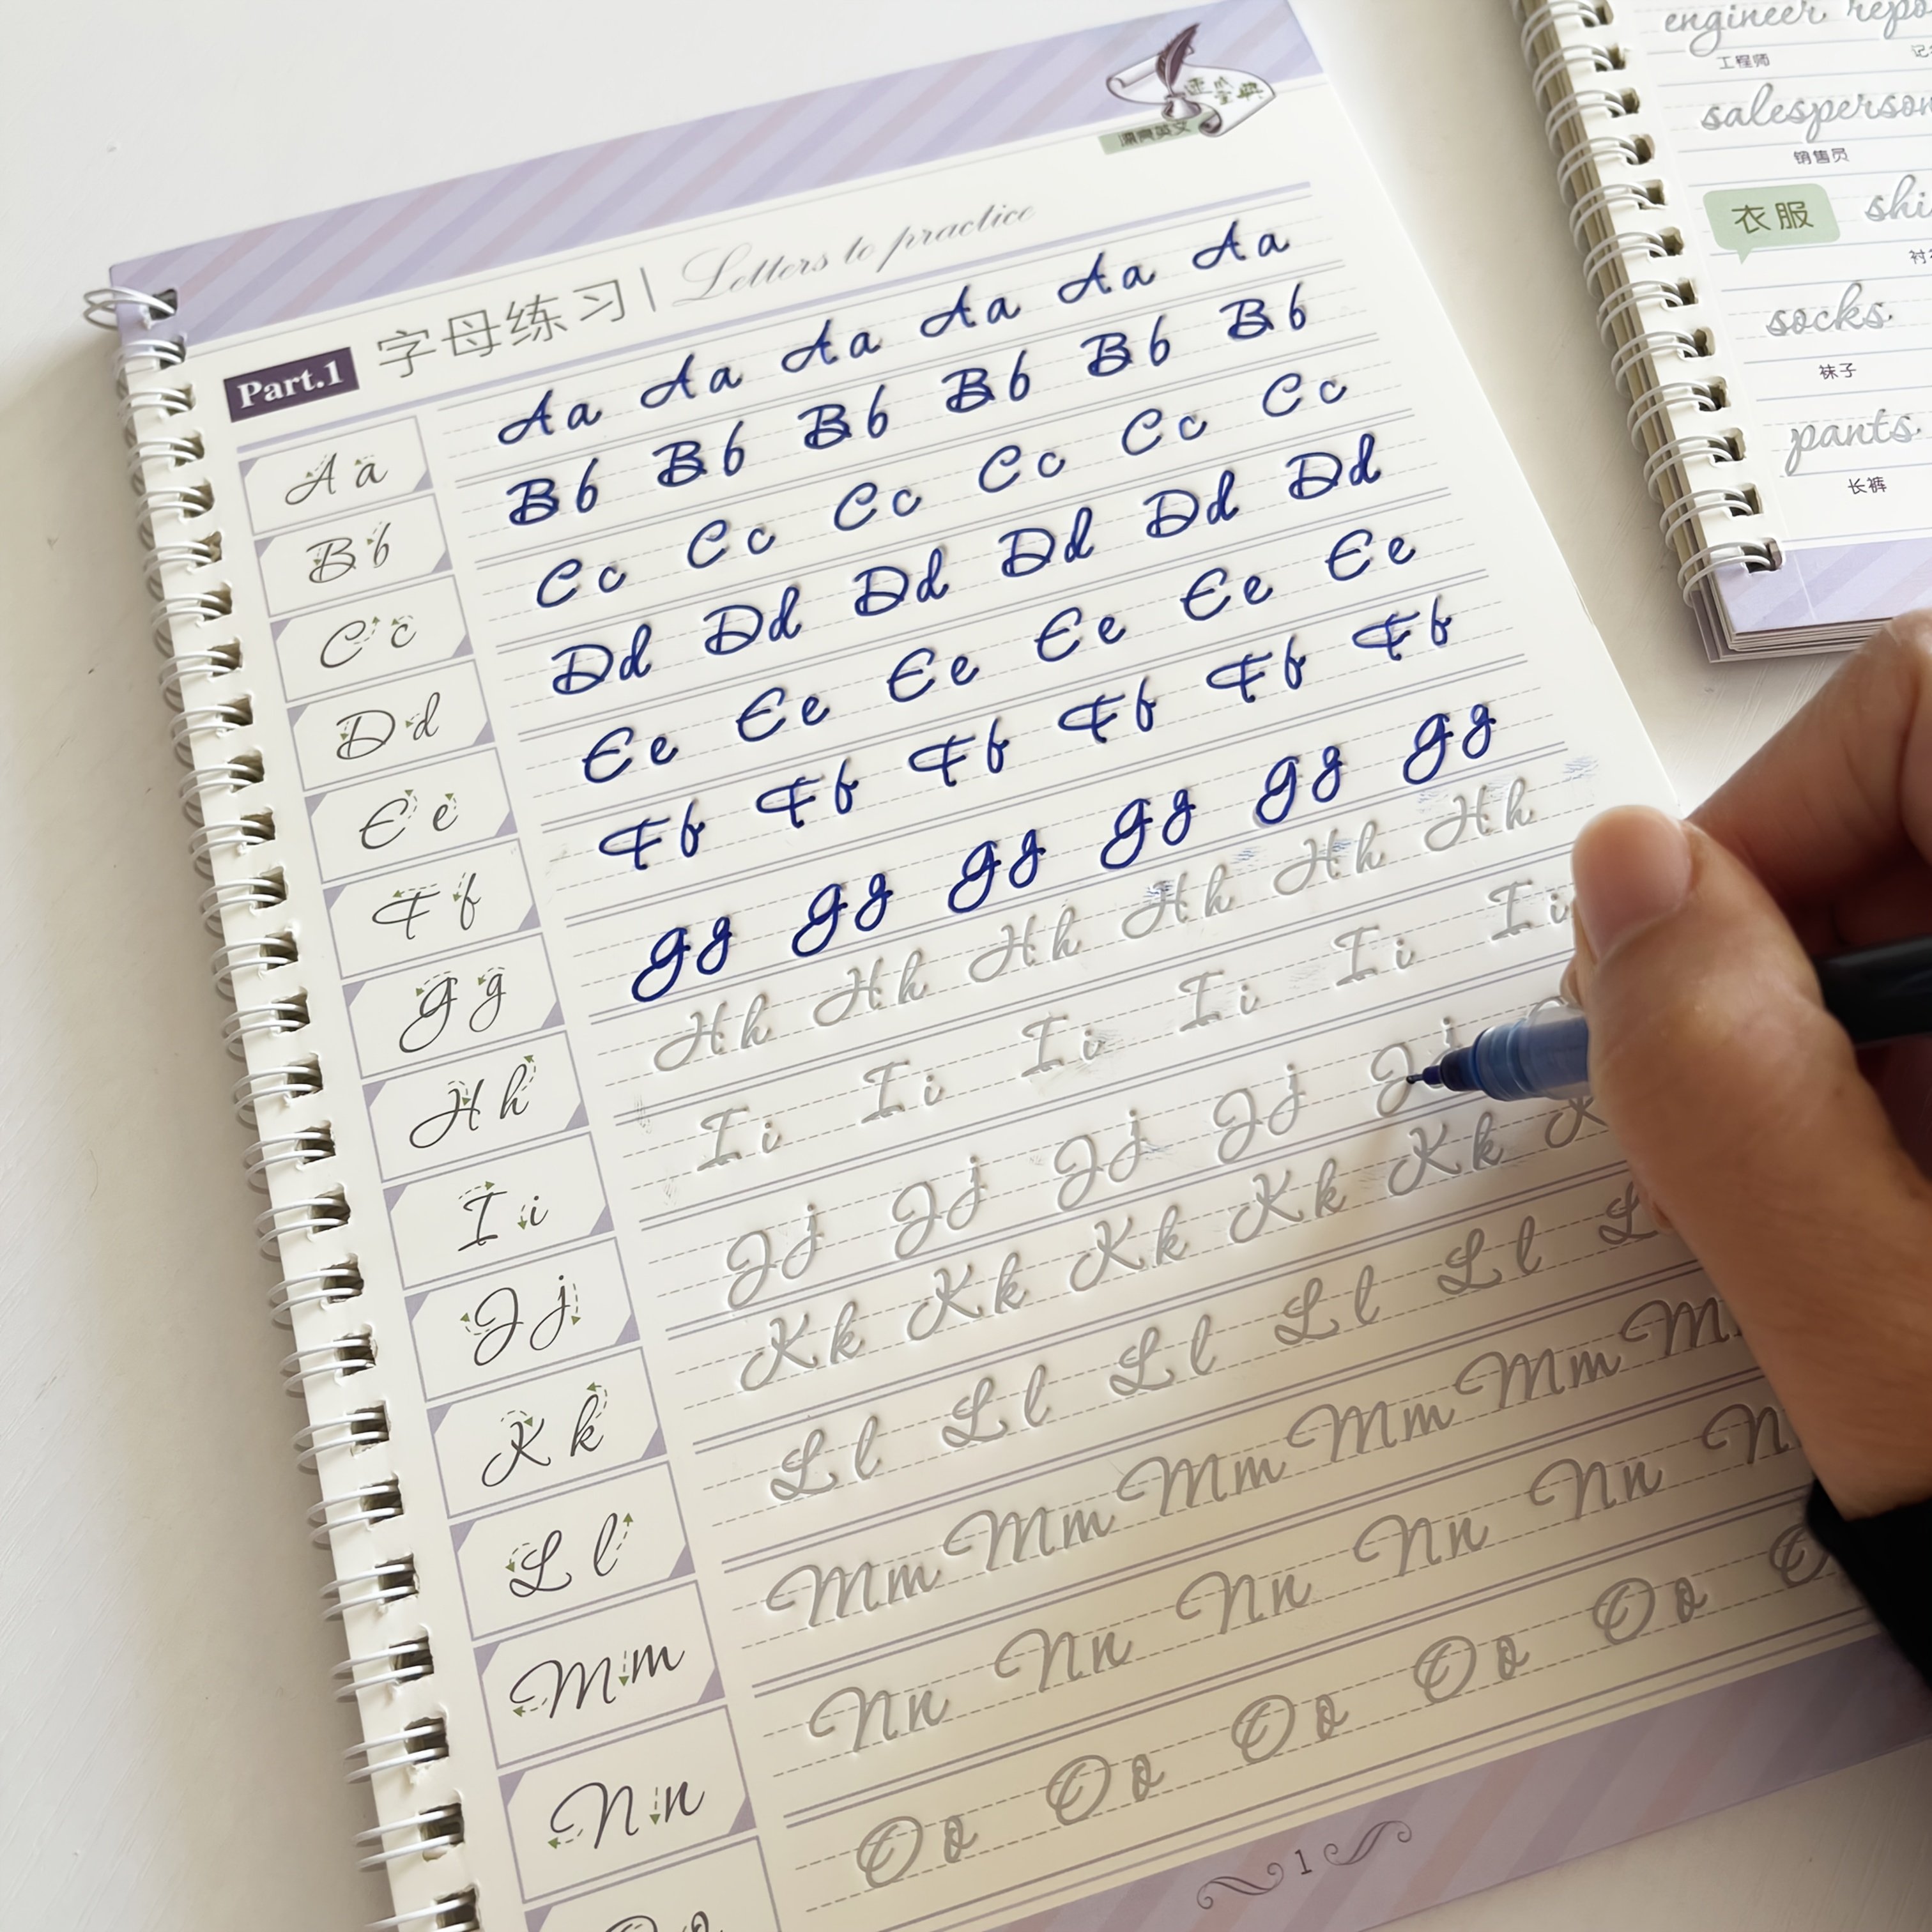 漂亮英文
Part.1 字母练习 | Letters to practice
Aa Aa Aa Aa Aa Aa Aa
Bb Bb Bb Bb Bb Bb Bb
Cc Cc Cc Cc Cc Cc Cc
Dd Dd Dd Dd Dd Dd Dd
Ee Ee Ee Ee Ee Ee Ee
Ff Ff Ff Ff Ff Ff Ff
Gg Gg Gg Gg Gg Gg Gg
Hh Hh Hh Hh Hh Hh Hh
Ii Ii Ii Ii Ii Ii Ii
Jj Jj Jj Jj Jj Jj
Kk Kk Kk Kk Kk Kk K
Ll Ll Ll Ll Ll Ll L
Mm Mm Mm Mm Mm Mm M
Nn Nn Nn Nn Nn Nn N
Oo Oo Oo Oo Oo O
1
engineer
工程师
salesperson
销售员
衣服
socks
袜子
pants
长裤